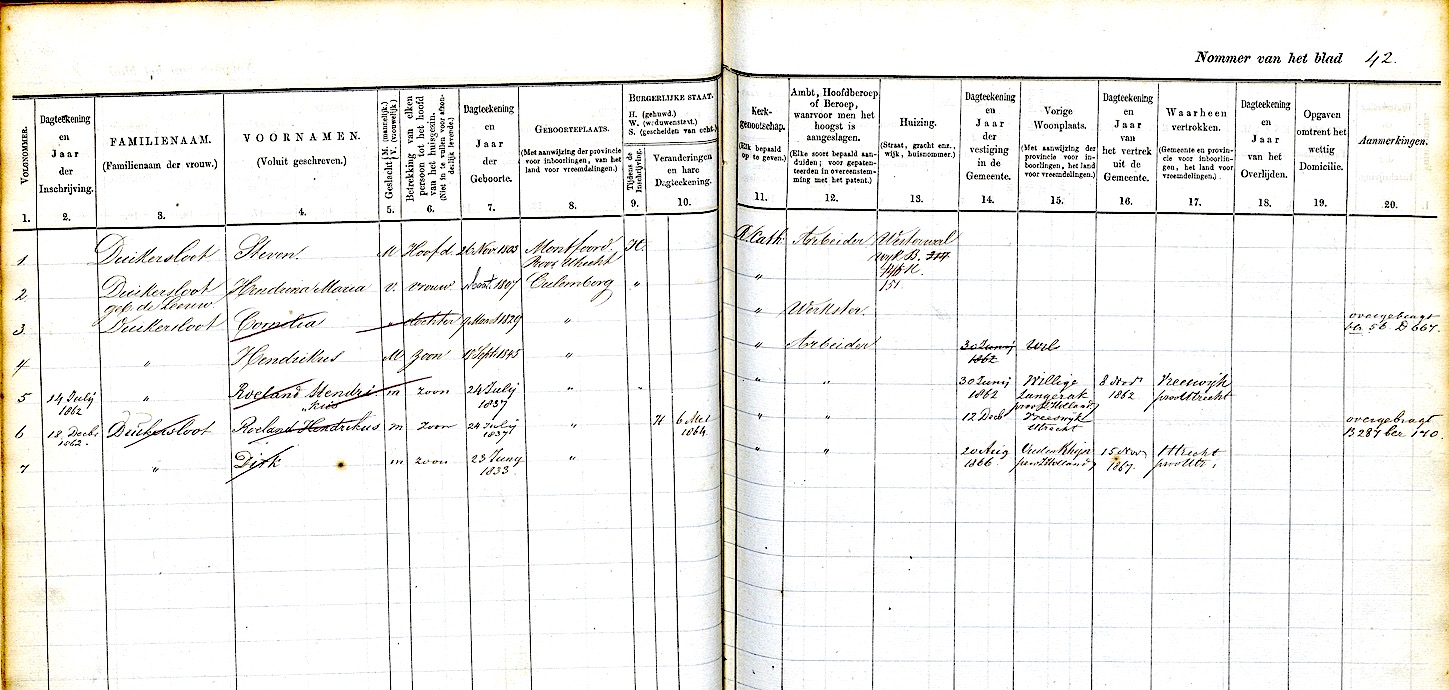 Nommer van het blad 42.
VOLGNOMMER.
1.
Dagteekening
en
Jaar
der
Inschrijving.
2.
FAMILIENAAM.
(Familienaam der vrouw.)
3.
VOORNAMEN.
(Voluit geschreven.)
4.
Geslacht. M. (mannelijk.) V. (vrouwelijk.)
5.
Betrekking van elken
persoon tot het hoofd
van het huisgezin.
(Niet in te vullen voor afzon-
derlijk levende.)
6.
Dagteekening
en
Jaar
der
Geboorte.
7.
GEBOORTEPLAATS.
(Met aanwijzing der provincie
voor inboorlingen, van het
land voor vreemdelingen.)
8.
BURGERLIJKE STAAT.
H. (gehuwd.)
W. (weduwenstaat.)
S. (gescheiden van echt.)
Tijdens de
Inschrijving.
9.
Veranderingen
en hare
Dagteekening.
10.
Kerk-
genootschap.
(Elk bepaald
op te geven.)
11.
Ambt, Hoofdberoep
of Beroep,
waarvoor men het
hoogst is
aangeslagen.
(Elke soort bepaald aan-
duiden; voor gepaten-
teerden in overeenstem-
ming met het patent.)
12.
Huizing.
(Straat, gracht enz.,
wijk, huisnommer.)
13.
Dagteekening
en
Jaar
der
vestiging
in de
Gemeente.
14.
Vorige
Woonplaats.
(Met aanwijzing der
provincie voor in-
boorlingen, het land
voor vreemdelingen.)
15.
Dagteekening
en
Jaar
van
het vertrek
uit de
Gemeente.
16.
Waarheen
vertrokken.
(Gemeente en provin-
cie voor inboorlin-
gen, het land voor
vreemdelingen.)
17.
Dagteekening
en
Jaar
van het
Overlijden.
18.
Opgaven
omtrent het
wettig
Domicilie.
19.
Aanmerkingen.
20.
1 Duikersloot Steven. M Hoofd. 26 Nov. 1803 Montfoord. H. R. Cath. Arbeider Westerwal
Prov. Utrecht wijk B.
151
2 Duikersloot Hendrina Maria V. vrouw 1807 Culemborg " "
geb. de Leeuw
3. Duikersloot Cornelia " dochter 9 Maart 1829 " " Werkster overgebragt
56. D 667.
4 " Hendrikus M Zoon Sept. 1845 " " Arbeider 30 Junij
1862
5 14 Julij " Roeland Hendri- m zoon 24 Julij " " " " 30 Junij Willige 8 Nov Vreeswijk
1862 kus 1837 1862 Langerak 1862 prov Utrecht
prov Z. Holland
6 18 Decbr Duikersloot Roeland Hendrikus m zoon 24 Julij " H 6 Mei " " 12 Decb Vreeswijk overgebragt
1862. 1837 1864. Utrecht B 287 140.
7 " Dirk m zoon 23 Junij " " " 20 Aug 15 Nov Utrecht
1833 1866 prov Z Holland 1867.